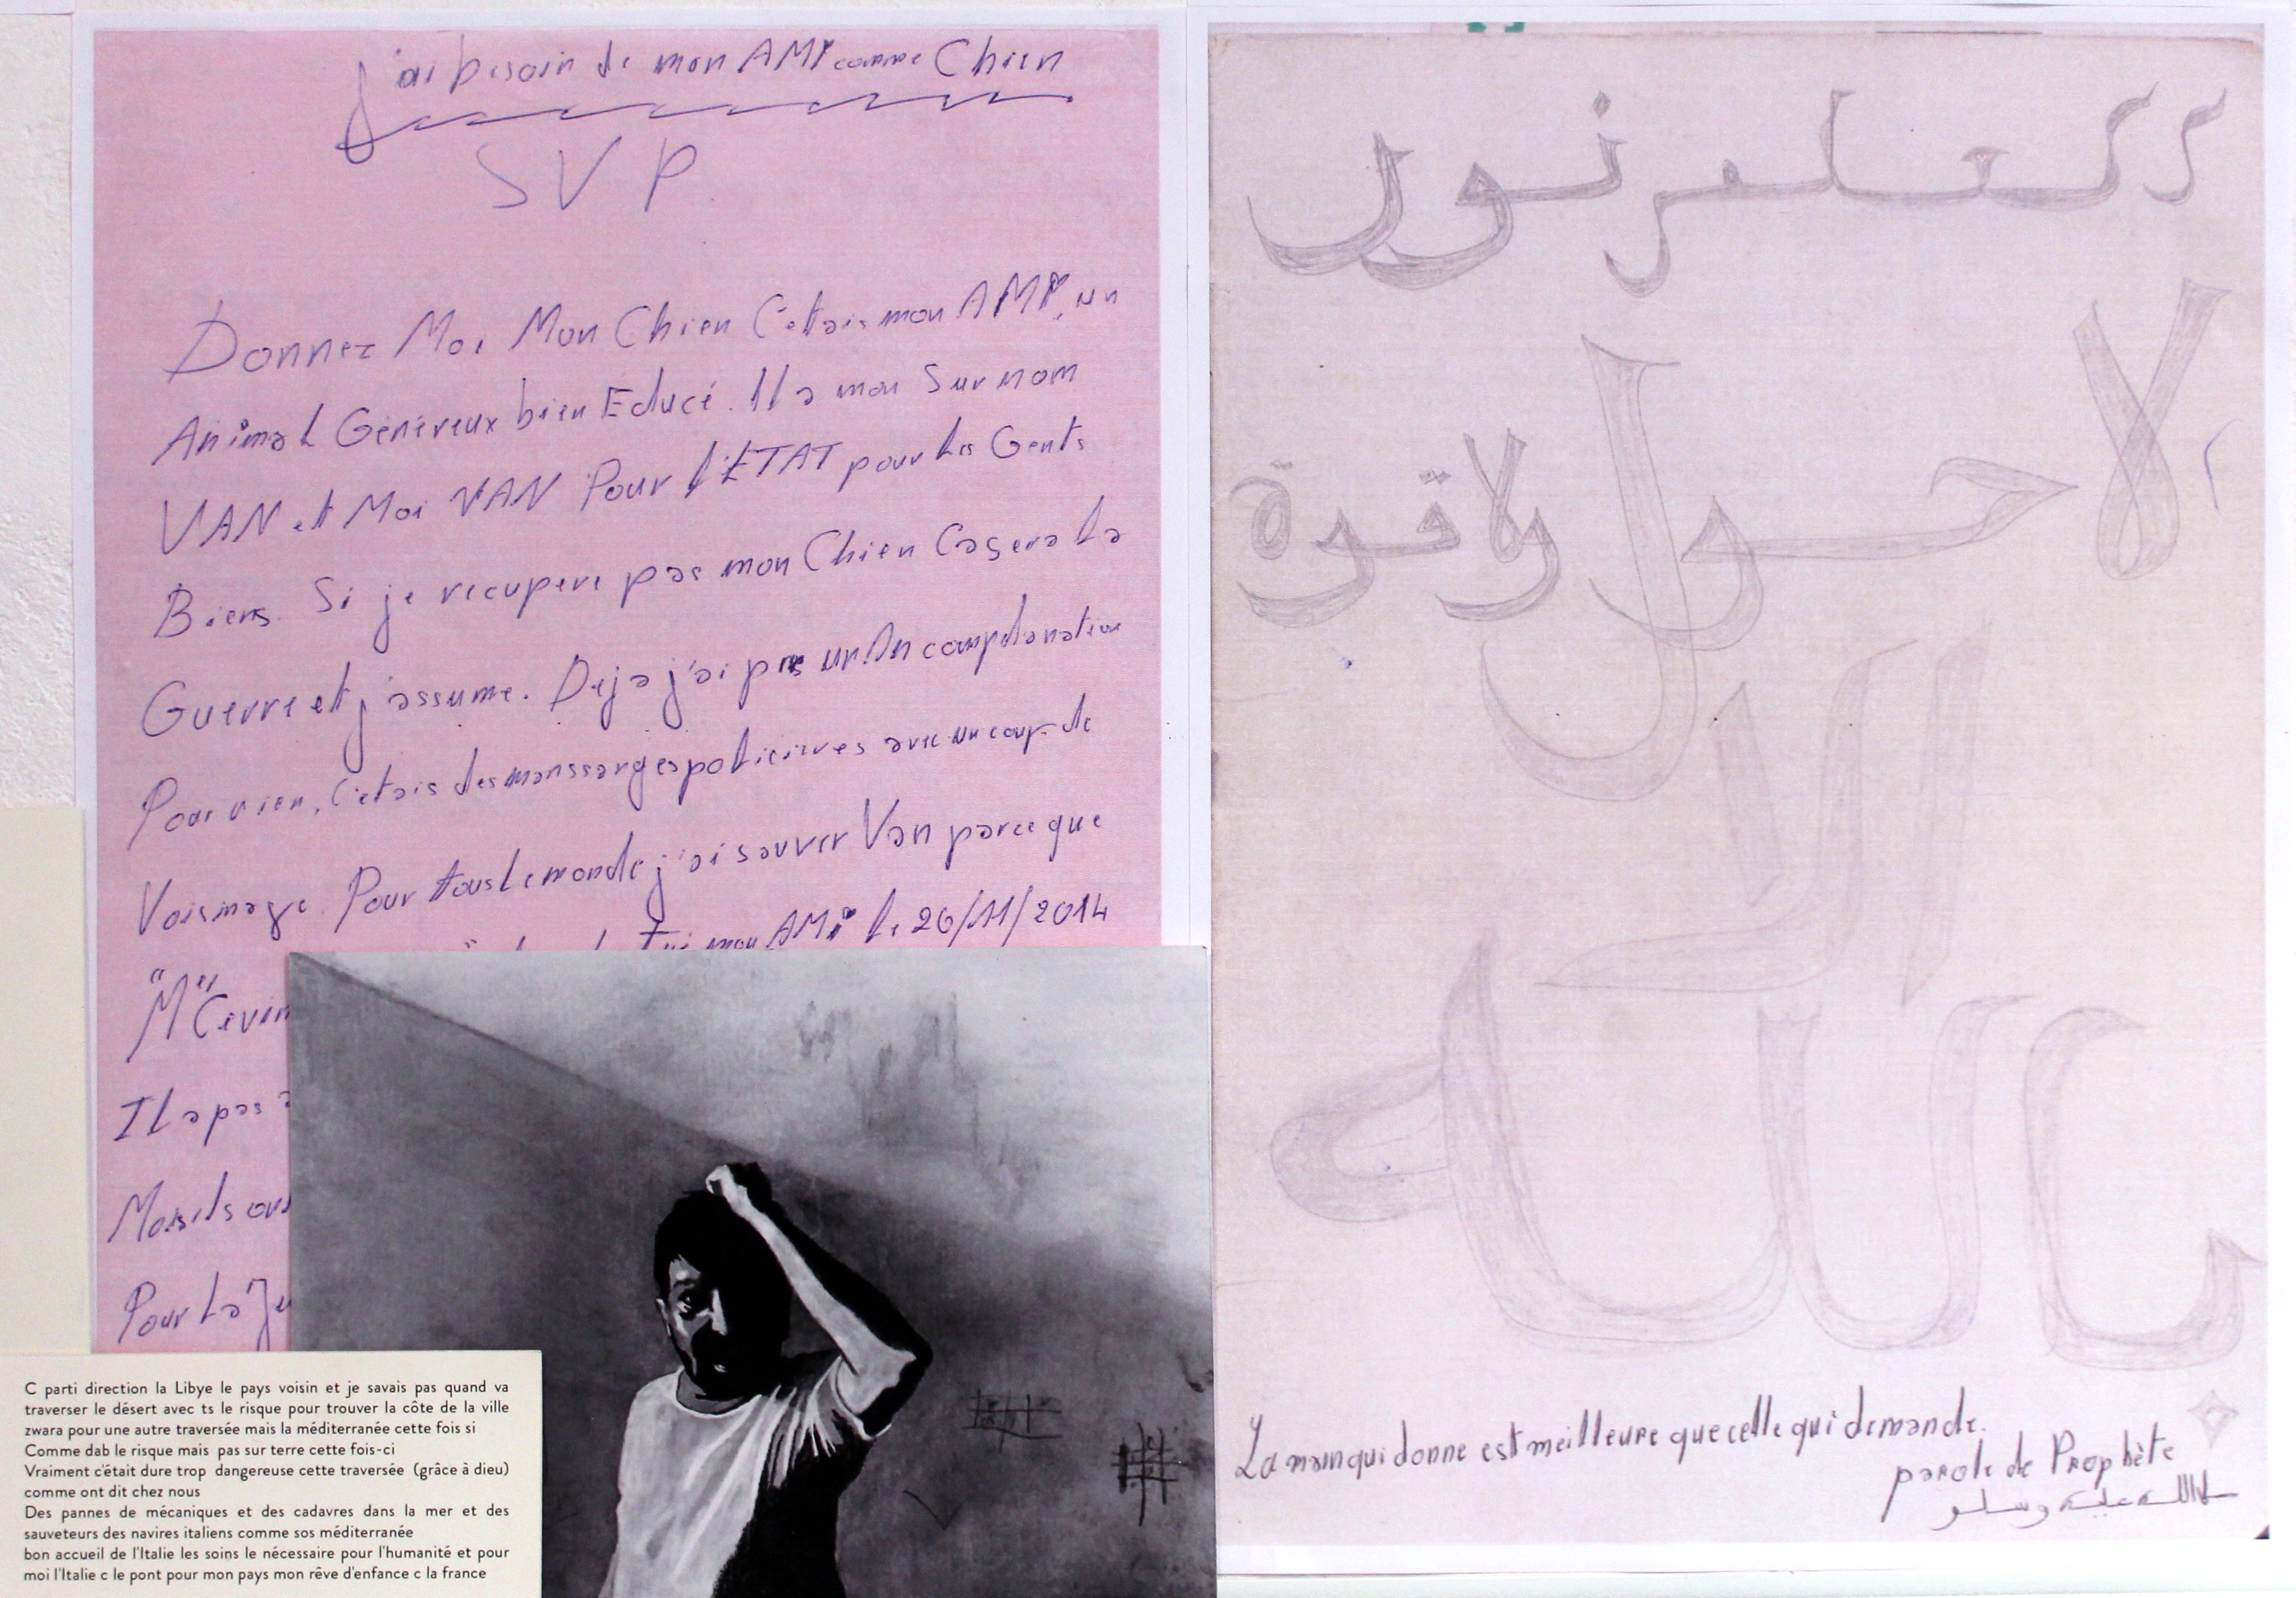 J'ai besoin de mon AMI comme Chien
SVP
Donnez Moi Mon Chien C'ettais mon AMI, un
Animal Généreux bien Educé. Il a mon Surnom
VAN ett Moi VAN Pour l'ETAT pour les Gents
Biens. Si je recupere pas mon Chien Ca sera La
Guerre ett j'assume. Deja j'ai pris un An
Pour rien, C'etais des policieres avec un coup de
Voisinage. Pour tous Le monde j'ai sauver Van parce que
mon AMi le 26/11/2014
"M"
IL a pas
Mais ils ont
Pour La
العلم نور
لا حول
ولا قوة
إلا
بالله
La main qui donne est meilleure que celle qui demande.
parole de Prophète
الله عليه وسلم
C parti direction la Libye le pays voisin et je savais pas quand va
traverser le désert avec ts le risque pour trouver la côte de la ville
zwara pour une autre traversée mais la méditerranée cette fois si
Comme dab le risque mais pas sur terre cette fois-ci
Vraiment c'était dure trop dangereuse cette traversée (grâce à dieu)
comme ont dit chez nous
Des pannes de mécaniques et des cadavres dans la mer et des
sauveteurs des navires italiens comme sos méditerranée
bon accueil de l'Italie les soins le nécessaire pour l'humanité et pour
moi l'Italie c le pont pour mon pays mon rêve d'enfance c la france